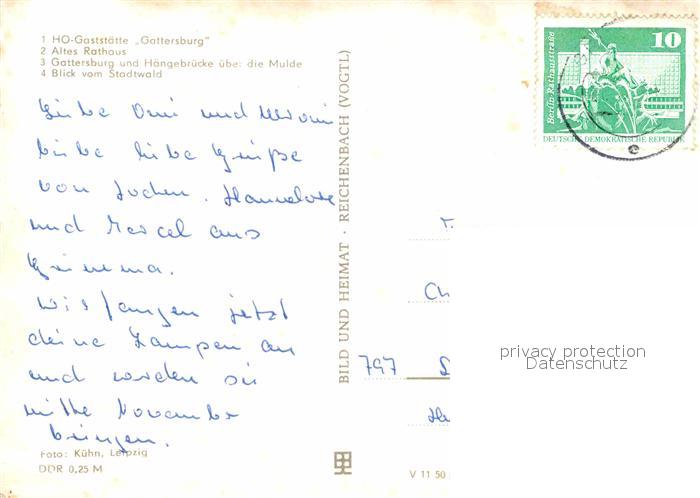 1 HO-Gaststätte „Gattersburg"
2 Altes Rathaus
3 Gattersburg und Hängebrücke über die Mulde
4 Blick vom Stadtwald
10
Berlin-Rathausstraße
DEUTSCHE DEMOKRATISCHE REPUBLIK
Liebe Omi und
liebe Grüße
von Jochen, Hannelore
und Marcel aus
Grimma.
Wir fangen jetzt
deine Lampen an
und werden sie
mitte November
bringen.
BILD UND HEIMAT · REICHENBACH (VOGTL)
797
privacy protection
Datenschutz
Foto: Kühn, Leipzig
DDR 0,25 M
V 11 50